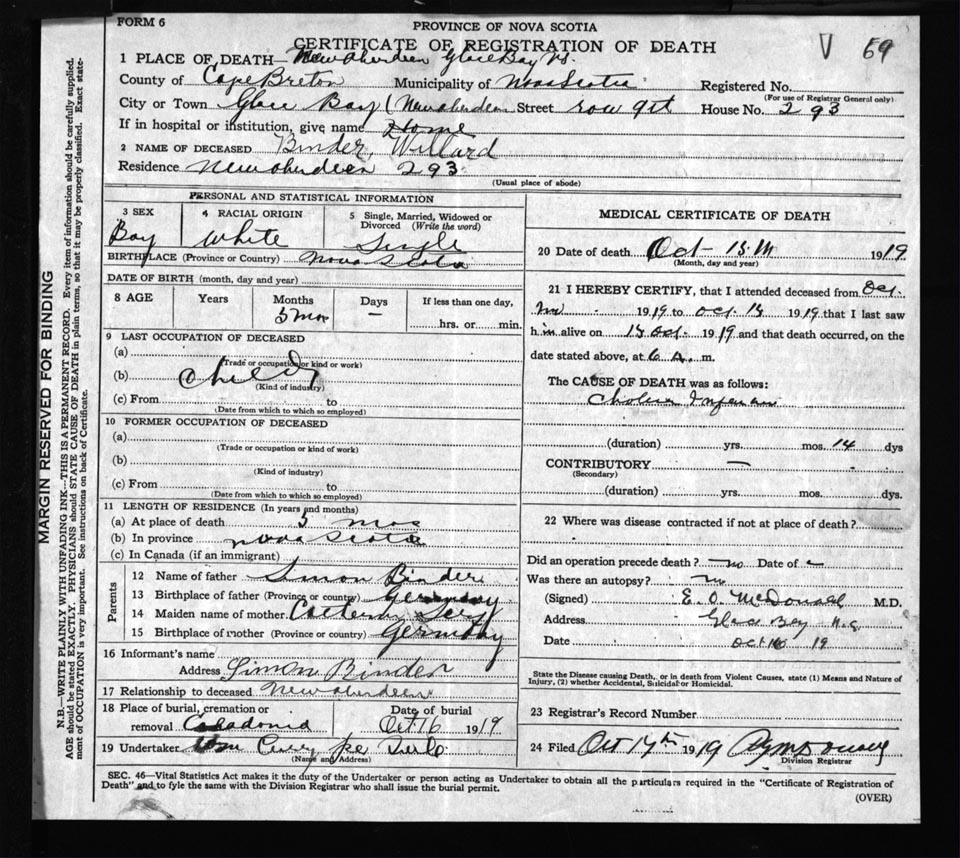 FORM 6
PROVINCE OF NOVA SCOTIA
CERTIFICATE OF REGISTRATION OF DEATH
V 69
1 PLACE OF DEATH— New Aberdeen Glace Bay NS.
County of Cape Breton Municipality of Nova Scotia Registered No.
(For use of Registrar General only)
City or Town Glace Bay (New Aberdeen Street row House No. 293
If in hospital or institution, give name Home
2 NAME OF DECEASED Binder Willard
Residence New Aberdeen 293
(Usual place of abode)
PERSONAL AND STATISTICAL INFORMATION
3 SEX 4 RACIAL ORIGIN 5 Single, Married, Widowed or Divorced (Write the word)
Boy White Single
BIRTHPLACE (Province or Country) Nova Scotia
DATE OF BIRTH (month, day and year)
8 AGE Years Months Days If less than one day,
5 mos — hrs. or min.
9 LAST OCCUPATION OF DECEASED
(a)
(Trade or occupation or kind or work)
(b) Child
(Kind of industry)
(c) From to
(Date from which to which so employed)
10 FORMER OCCUPATION OF DECEASED
(a)
(Trade or occupation or kind of work)
(b)
(Kind of industry)
(c) From to
(Date from which to which so employed)
11 LENGTH OF RESIDENCE (In years and months)
(a) At place of death 5 mos
(b) In province Nova Scotia
(c) In Canada (if an immigrant)
Parents
12 Name of father Simon Binder
13 Birthplace of father (Province or country) Germany
14 Maiden name of mother
15 Birthplace of mother (Province or country) Germany
16 Informant's name
Address Simon Binder
17 Relationship to deceased New Aberdeen
18 Place of burial, cremation or removal Date of burial
Caladonia Oct 16 1919
19 Undertaker
(Name and Address)
MEDICAL CERTIFICATE OF DEATH
20 Date of death Oct 15th 1919
(Month, day and year)
21 I HEREBY CERTIFY, that I attended deceased from Oct.
1919 to Oct. 15 1919 that I last saw
him alive on 15 Oct. 1919 and that death occurred, on the
date stated above, at 6 A. m.
The CAUSE OF DEATH was as follows:
Cholera Infantum
(duration) yrs. mos. 14 dys
CONTRIBUTORY —
(Secondary)
(duration) yrs. mos. dys.
22 Where was disease contracted if not at place of death?
Did an operation precede death? no Date of —
Was there an autopsy? no
(Signed) E. O. McDonald M.D.
Address Glace Bay N.S.
Date Oct 16 19
State the Disease causing Death, or in death from Violent Causes, state (1) Means and Nature of
Injury, (2) whether Accidental, Suicidal or Homicidal.
23 Registrar's Record Number
24 Filed Oct 17th 1919
Division Registrar
SEC. 46—Vital Statistics Act makes it the duty of the Undertaker or person acting as Undertaker to obtain all the particulars required in the "Certificate of Registration of
Death" and to fyle the same with the Division Registrar who shall issue the burial permit.
(OVER)
MARGIN RESERVED FOR BINDING
N.B.—WRITE PLAINLY WITH UNFADING INK—THIS IS A PERMANENT RECORD. Every item of information should be carefully supplied.
AGE should be stated EXACTLY. PHYSICIANS should STATE CAUSE OF DEATH in plain terms, so that it may be properly classified. Exact state-
ment of OCCUPATION is very important. See instructions on back of Certificate.